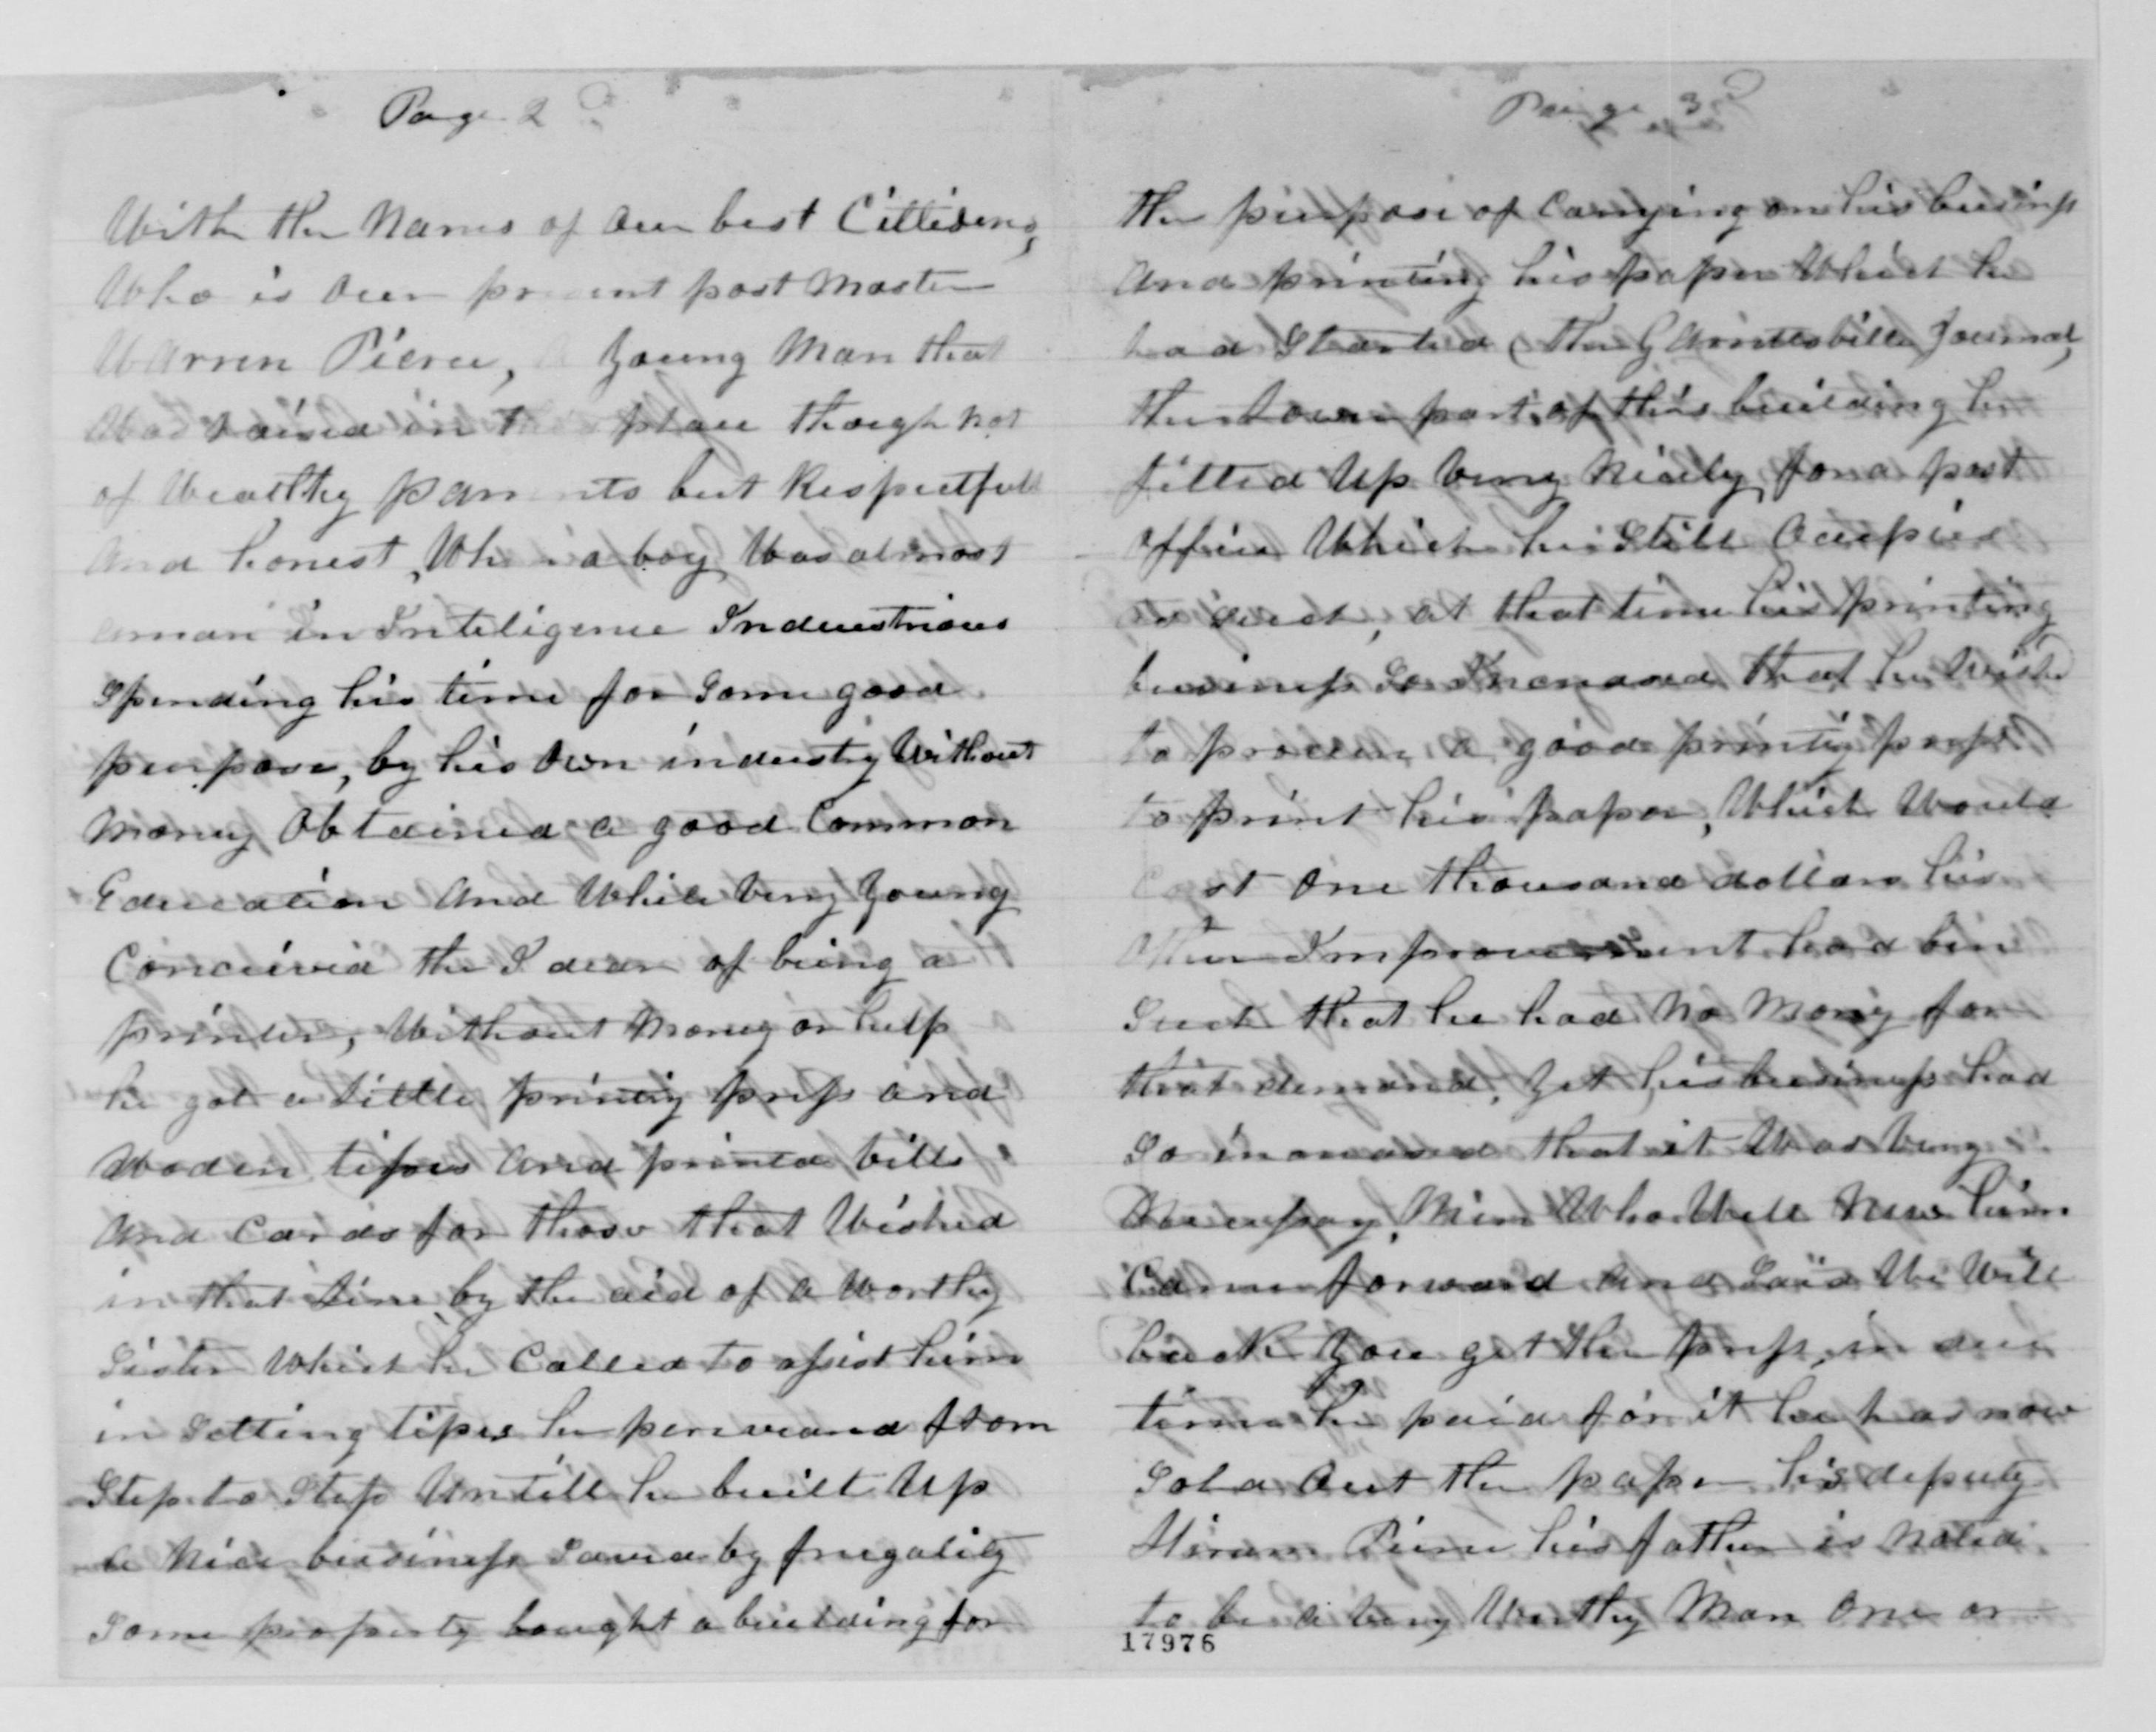 Page 2
With the Names of Our best Cittisens,
Who is Our present post Master
Warren Pierce, A Young Man that
Was raised in this place though not
of Wealthy parents but Respectfull
And honest, When a boy Was almost
aman in Inteligence Industrious
Spending his time for Some good
purpose, by his Own industry Without
Money Obtained a good Common
Education And While Very Young
Conceived the Idear of being a
printer, Without Money or help
he got a little printig press and
Woden tipes And printed bills
And Cards for those that Wished
in that line by the aid of a Worthy
Sister Which he Called to assist him
in Setting tipes he perseveared from
Step to Step Untill he built Up
a Nice business Saved by frugality
Some property bought a building for
Paige 3
the purpose of Carrying on his business
And printing his paper Which he
had Started (the Garrettsville Journal,
the Lower part of this building he
fitted Up Very Nicely for a post
Office Which he Still Occupies
as Such, at that time his printing
business So Increased that he Wishe
to procure a good printig press
to print his paper, Which Would
Cost One thousand dollars his
Other Improvement had bin
Such that he had No Mony for
that demand, Yet his business had
So increased that it Was Very
Necessary, Men Who Well New him
Came forward And Said We Will
back You get the press, in due
time he paid for it he has now
Sold Out the paper his deputy
Hiram Pierce his father is Noted
to be a Very Worthy Man One or
17976